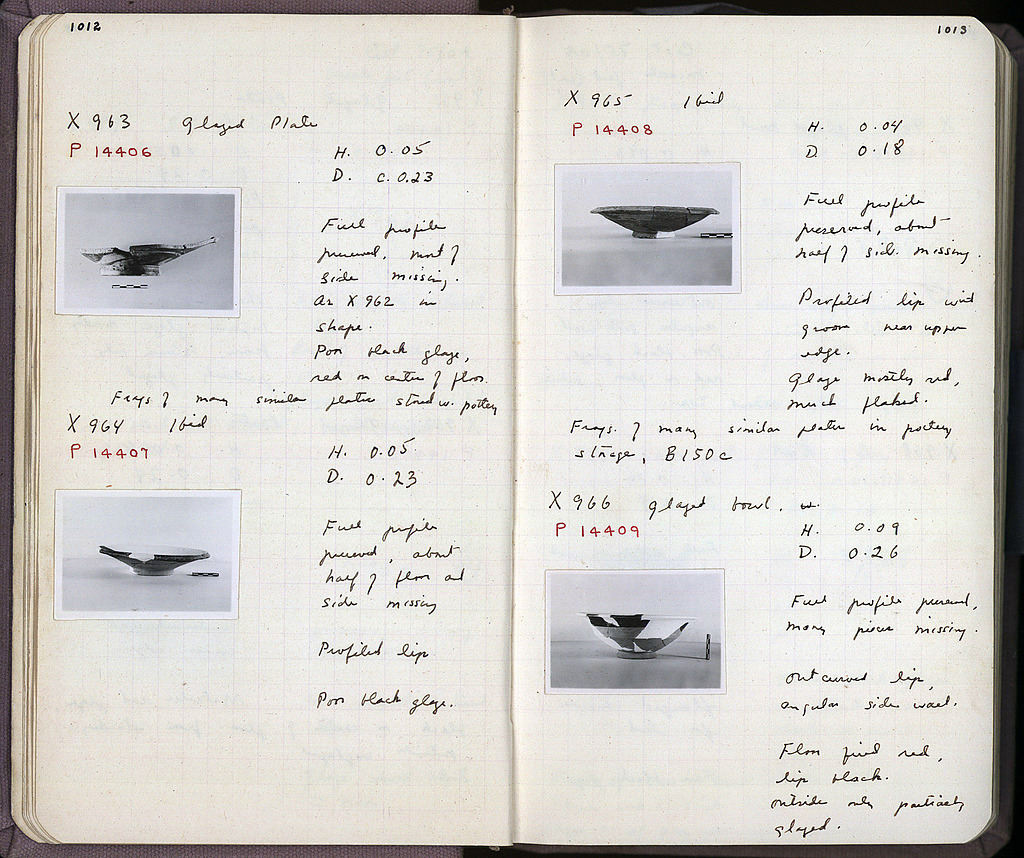 1012
X 963 Glazed Plate
P 14406
H. 0.05
D. c. 0.23
Full profile
preserved, most of
side missing.
As X 962 in
shape.
Poor black glaze,
red on center of floor.
Frags of many similar plates stored w. pottery
X 964 Ibid
P 14407
H. 0.05
D. 0.23
Full profile
preserved, about
half of floor and
side missing
Profiled lip
Poor black glaze.
1013
X 965 Ibid
P 14408
H. 0.04
D. 0.18
Full profile
preserved, about
half of side missing.
Profiled lip with
groove near upper
edge.
Glaze mostly red,
much flaked.
Frags. of many similar plates in pottery
storage, B150c
X 966 Glazed bowl.
P 14409
H. 0.09
D. 0.26
Full profile preserved,
many pieces missing.
Outcurved lip,
angular side wall.
Floor fired red,
lip black.
Outside only partially
glazed.